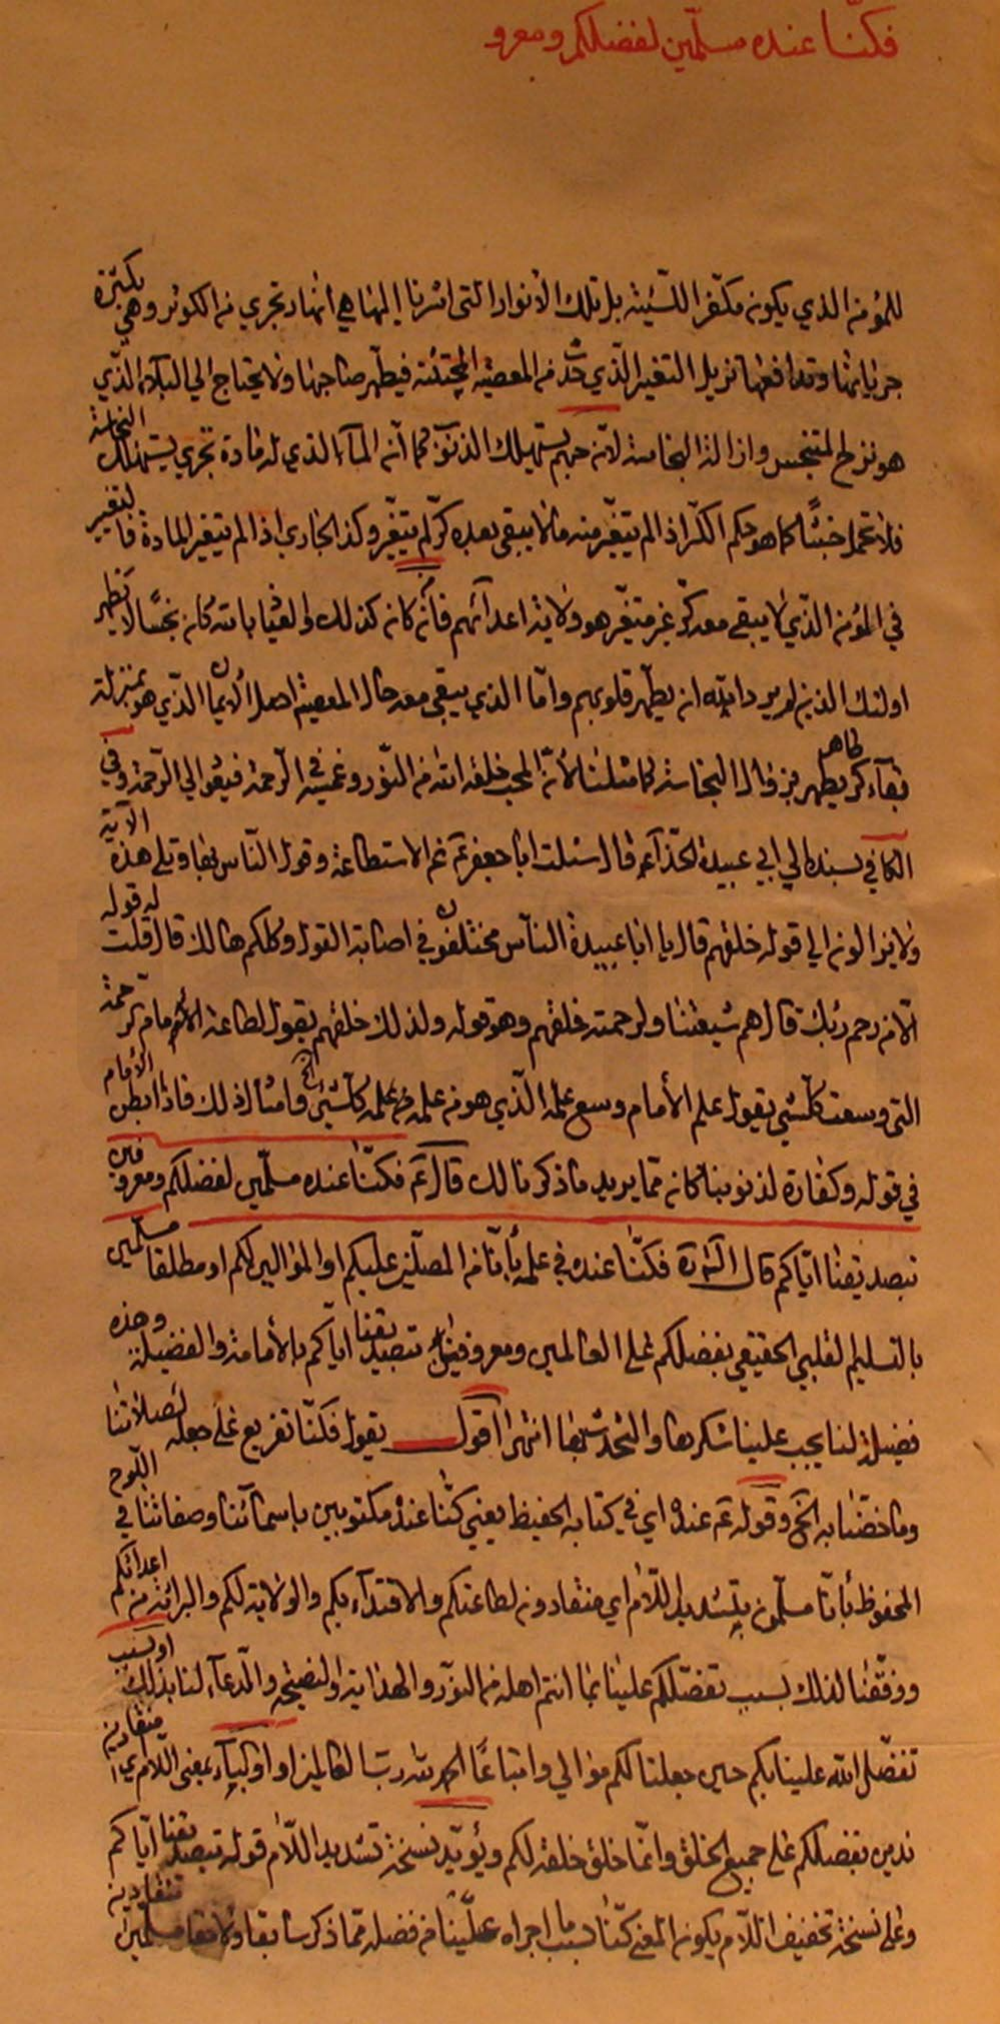 فكنّا عنده مسلّمين لفضلكم ومعرو
للمؤمن الذي يكون مكفر السّيئة بل تلك الأنوار التى اشرنا اليها هي أنهار تجري من الكوثر وهي بكثرة
جريانها وتدافعها تزيل التغير الذّي حدث من المعصية المجتثثة فيطهر صاحبها ولا يحتاج الي البلاء الذّي
هو نزح المتنجس وازالة النجاسة لأن حبهم يستهلك الذنوب كما أن الماء الذي له مادة تجري يستهلك النجاسة
فلا تحمل خبثًا كما هو حكم الكرّ اذا لم يتغيّر منه مالا يبقى بعده كرّ لم يتغيّر وكذا الجاري اذا لم تتغير المادة فالتغيير
في المؤمن الذّي لا يبقى معه كرّ غير متغيّر هو ولاية اعدائهم فأن كان كذلك والعياذ بالله كان نجسًا لا يطهر
اولئك الذين لم يرد الله ان يطهّر قلوبهم وامّا الذي يبقى معه حال المعصية اصل الأيمان الذّي هو بمنزلة
بقاء كر طاهر يطهر بزوال النجاسة كما مثلنا لأنّ المحب خلقه الله من النّور وغمسه في الرّحمة فيعود الي الرّحمة وفي
الكافي بسنده الي ابي عبيدة الحذّاء قال سئلت أبا جعفر ع عن الاستطاعة وقول النّاس فقال وتلى هذه الآية
ولا يزالون الي قوله خلقهم قال يا ابا عبيدة النّاس مختلفون في اصابة القول وكلكم هالك قال قلت له قوله
الّا من رحم ربّك قال هم شيعتنا ولرحمته خلقهم وهو قوله ولذلك خلقهم يقول لطاعة الأمام الرّحمة
التى وسعت كلّشي يقول علم الأمام وسع علمه الّذي هو من علمه كلّشئ الخ وامثال ذلك فاذا ابطن الأمام
في قوله وكفارة لذنوبنا كان ممّا يريد ماذكرنا لك قال ع فكنّا عنده مسلّمين لفضلكم ومعروفين
بتصديقنا ايّاكم قال الشّارح فكنّا عنده في علمه بأنّا من المصلّين عليكم او الموالين لكم او مطلقا مسلّمين
بالتسليم القلبي الحقيقي بفضلكم على العالمين ومعروفين بتصديقنا ايّاكم بالأمامة والفضيلة وهذه
فضيلة لنا يجب علينا شكرها والتحدّث بها انتهى اقول يقول فكنّا تفريع على جعله لصلاتنا
وما خصّنا به الخ وقوله ع عنده اي في كتابه الحفيظ يعني كنّا عنده مكتوبين باسمائنا وصفاتنا في اللّوح
المحفوظ بأنّا مسلّمون بتشديد اللّام اي منقادون لطاعتكم والاقتداء بكم والولاية لكم والبرائة من اعدائكم
ووفّقنا لذلك بسبب تفضّلكم علينا بما انتم اهله من النّور والهداية والنصيحة والدّعاء لنا بذلك او بسبب
تفضّل الله علينا بكم حين جعلنا لكم موالي واتباعًا الحمد لله ربّ العالمين او اولياء بمعنى اللام اي منقادين
ندين بفضلكم على جميع الخلق وانّما خلق خلقه لكم ويؤيّد نسخة تشديد اللّام قوله بتصديقنا ايّاكم
وعلى نسخة تخفيف اللّام يكون المعنى كنّا بسبب ما اجراه علينا من فضله ممّا ذكر سابقا ولاحقا مسلمين منقادين